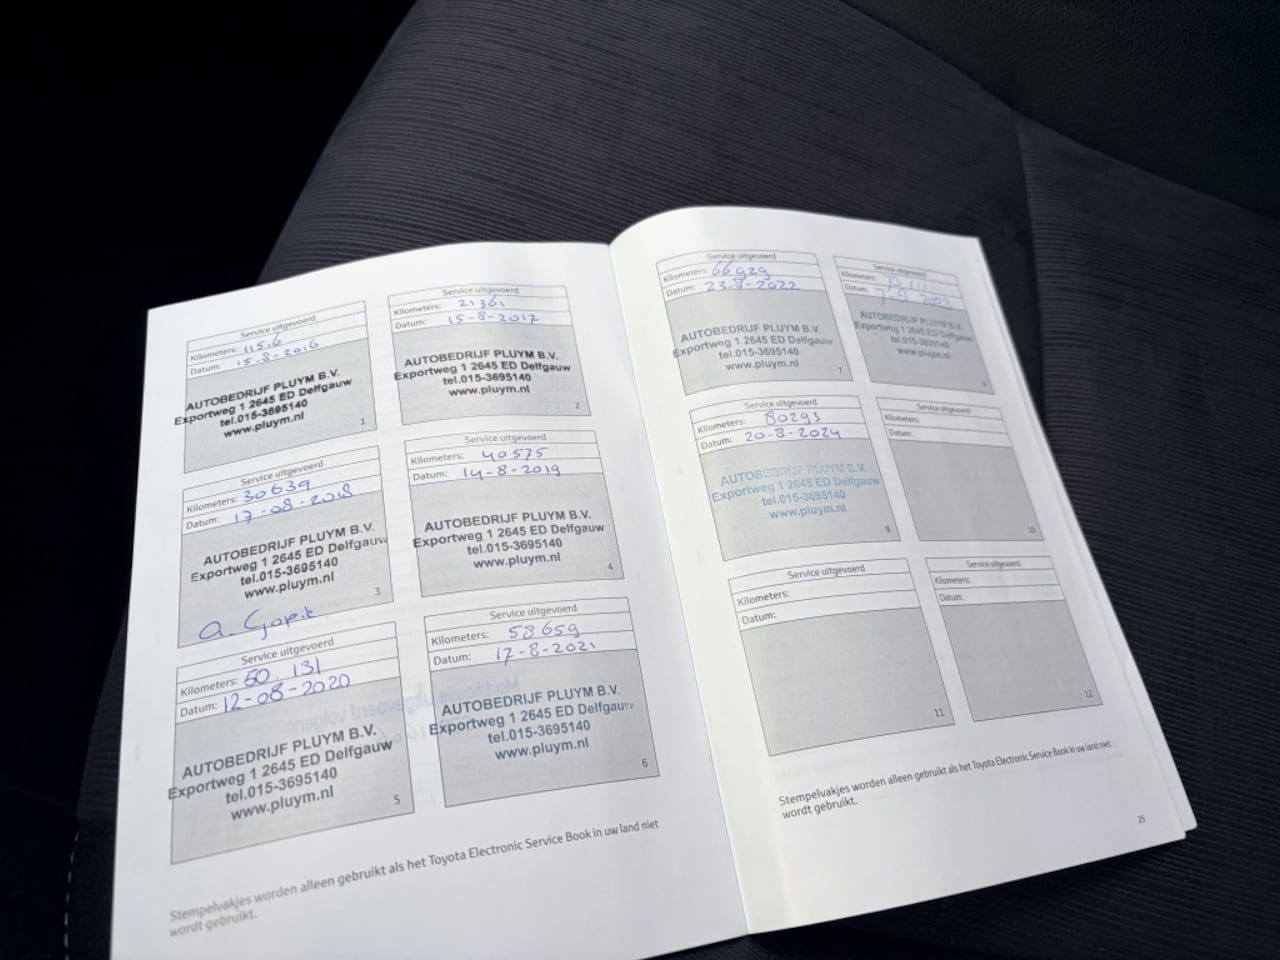 Service uitgevoerd
Kilometers: 11516
Datum: 15-8-2016
AUTOBEDRIJF PLUYM B.V.
Exportweg 1 2645 ED Delfgauw
tel.015-3695140
www.pluym.nl
1
Service uitgevoerd
Kilometers: 21361
Datum: 15-8-2017
AUTOBEDRIJF PLUYM B.V.
Exportweg 1 2645 ED Delfgauw
tel.015-3695140
www.pluym.nl
2
Service uitgevoerd
Kilometers: 30639
Datum: 17-08-2018
AUTOBEDRIJF PLUYM B.V.
Exportweg 1 2645 ED Delfgauw
tel.015-3695140
www.pluym.nl
3
Service uitgevoerd
Kilometers: 40575
Datum: 14-8-2019
AUTOBEDRIJF PLUYM B.V.
Exportweg 1 2645 ED Delfgauw
tel.015-3695140
www.pluym.nl
4
Service uitgevoerd
Kilometers: 50.131
Datum: 12-08-2020
AUTOBEDRIJF PLUYM B.V.
Exportweg 1 2645 ED Delfgauw
tel.015-3695140
www.pluym.nl
5
Service uitgevoerd
Kilometers: 58659
Datum: 17-8-2021
AUTOBEDRIJF PLUYM B.V.
Exportweg 1 2645 ED Delfgauw
tel.015-3695140
www.pluym.nl
6
Stempelvakjes worden alleen gebruikt als het Toyota Electronic Service Book in uw land niet
wordt gebruikt.
Service uitgevoerd
Kilometers: 66929
Datum: 23-8-2022
AUTOBEDRIJF PLUYM B.V.
Exportweg 1 2645 ED Delfgauw
tel.015-3695140
www.pluym.nl
7
Service uitgevoerd
Kilometers:
Datum:
AUTOBEDRIJF PLUYM B.V.
Exportweg 1 2645 ED Delfgauw
tel.015-3695140
www.pluym.nl
8
Service uitgevoerd
Kilometers: 80293
Datum: 20-8-2024
AUTOBEDRIJF PLUYM B.V.
Exportweg 1 2645 ED Delfgauw
tel.015-3695140
www.pluym.nl
9
Service uitgevoerd
Kilometers:
Datum:
10
Service uitgevoerd
Kilometers:
Datum:
11
Service uitgevoerd
Kilometers:
Datum:
12
Stempelvakjes worden alleen gebruikt als het Toyota Electronic Service Book in uw land niet
wordt gebruikt.
25